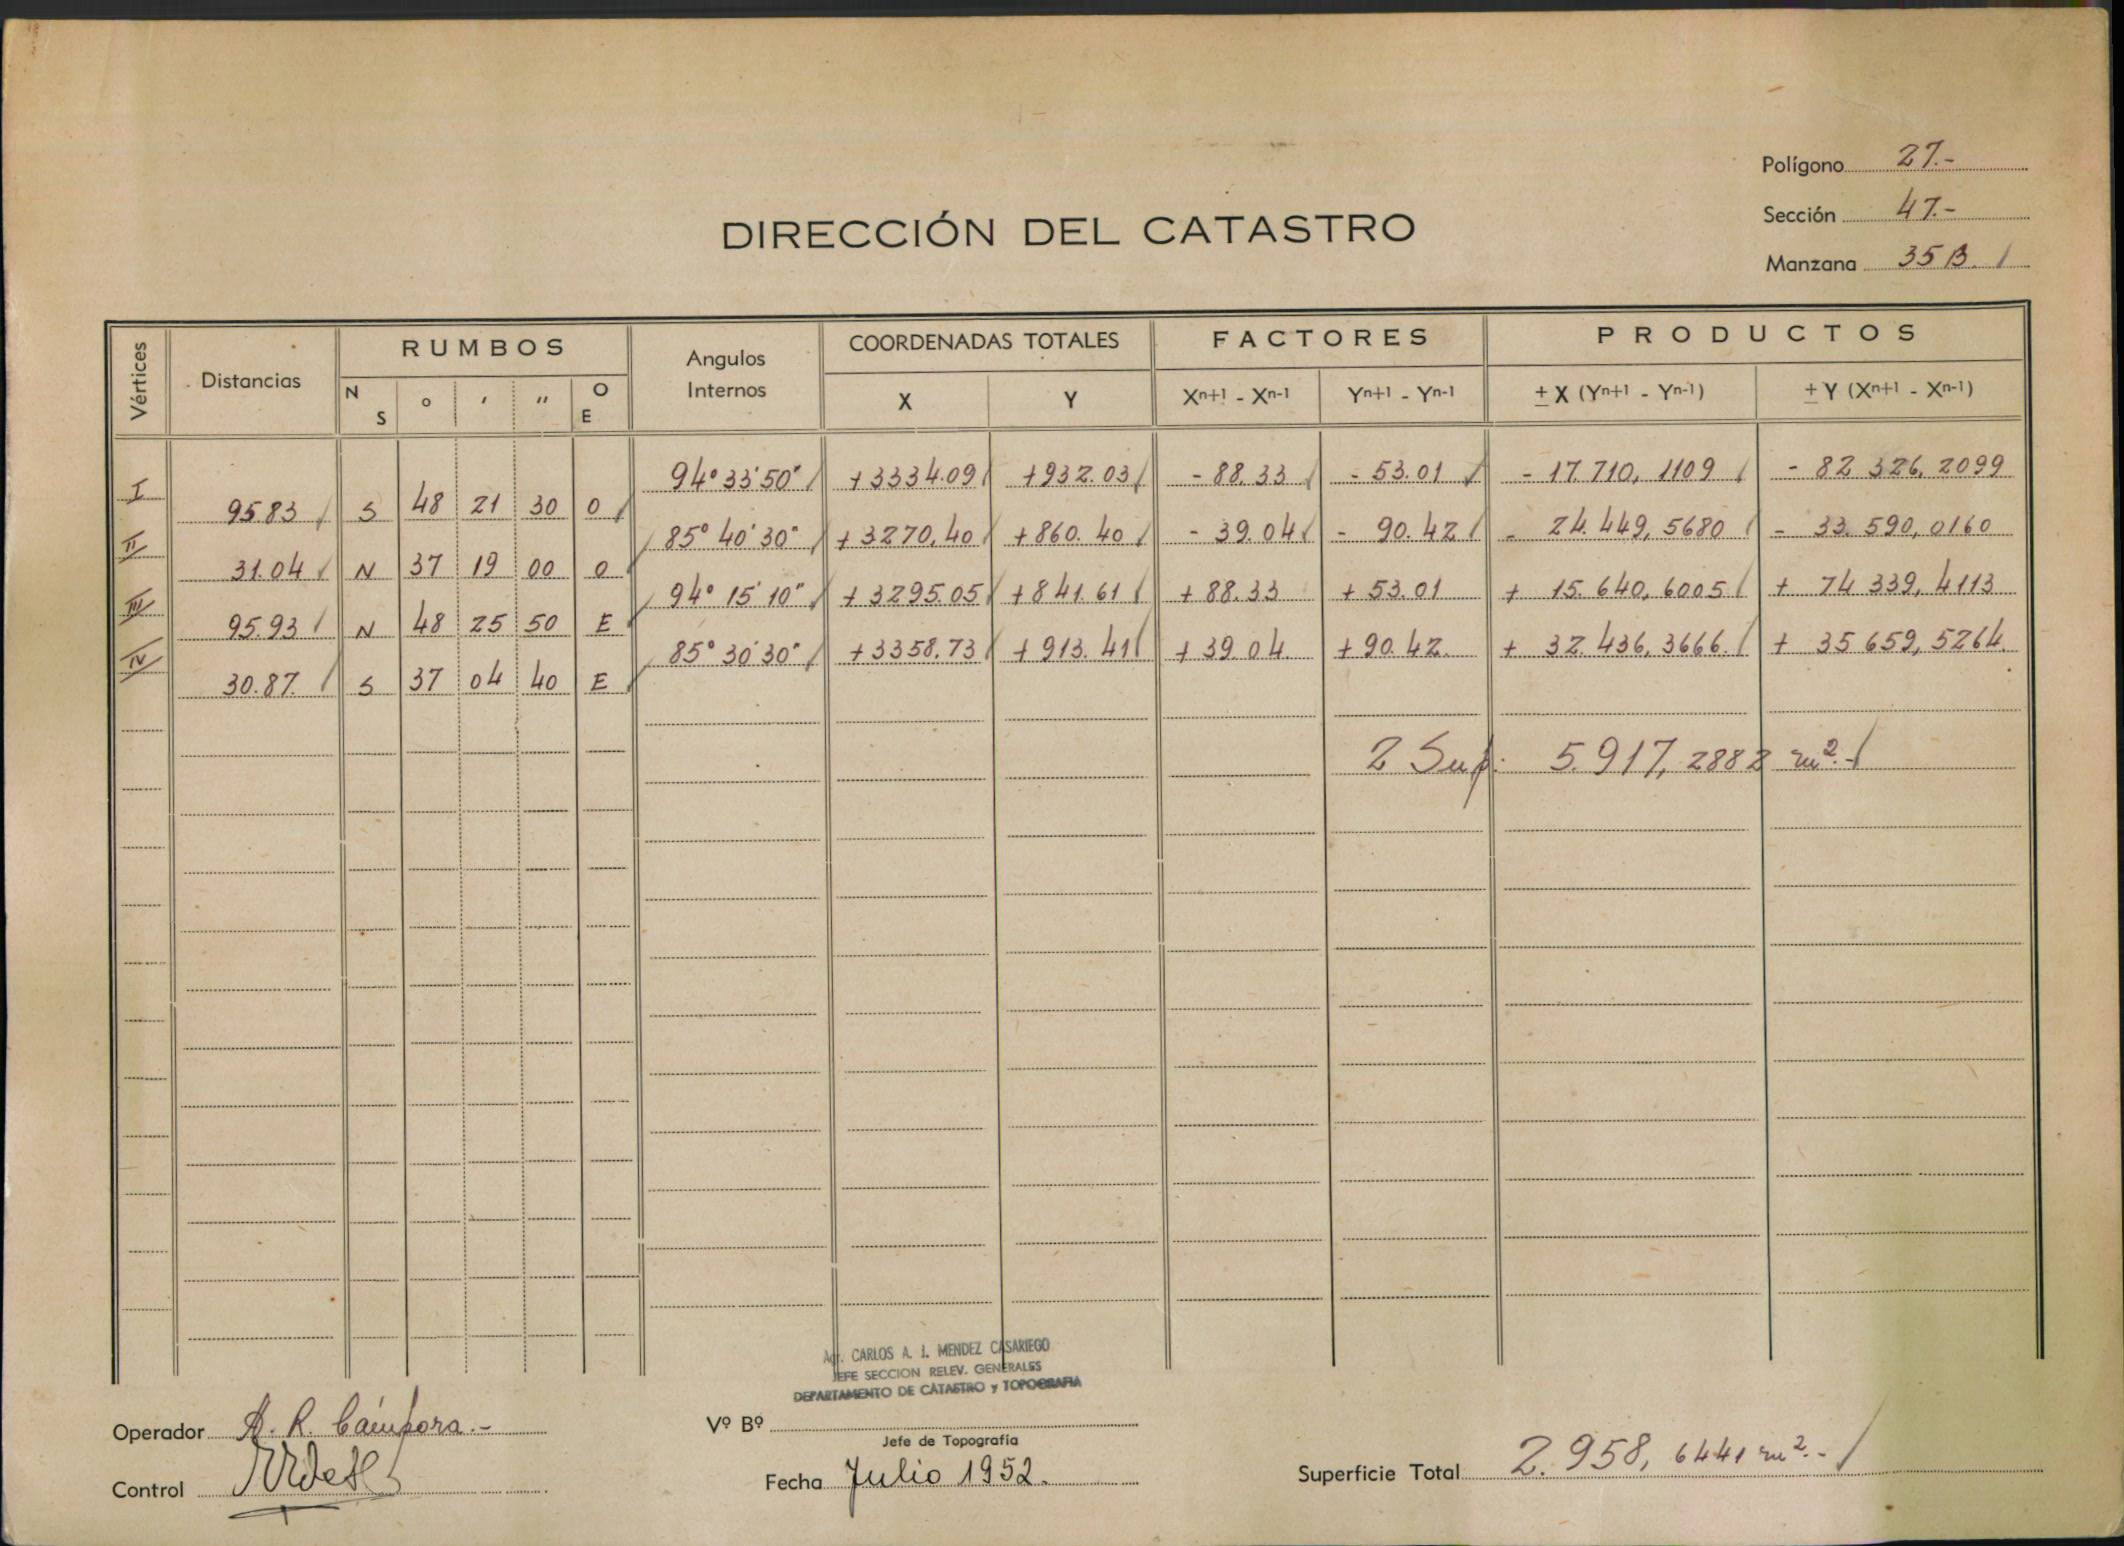 Polígono 27.-
Sección 47.-
Manzana 35 B.
DIRECCIÓN DEL CATASTRO
Vértices Distancias RUMBOS Angulos Internos COORDENADAS TOTALES FACTORES PRODUCTOS
N S ° ′ ″ O E X Y Xn+1 - Xn-1 Yn+1 - Yn-1 ± X (Yn+1 - Yn-1) ± Y (Xn+1 - Xn-1)
I 94° 33' 50" +3334.09 +932.03 - 88.33 - 53.01 - 17.710,1109 - 82 326,2099
95.83 S 48 21 30 O
II 85° 40' 30" +3270.40 +860.40 - 39.04 - 90.42 - 24.449,5680 - 33.590,0160
31.04 N 37 19 00 O
III 94° 15' 10" +3295.05 +841.61 +88.33 +53.01 + 15.640,6005 + 74 339,4113
95.93 N 48 25 50 E
IV 85° 30' 30" +3358.73 +913.41 +39.04 +90.42 + 32.436,3666 + 35 659,5264
30.87 S 37 04 40 E
2 Sup. 5.917,2882 m².-
Agr. CARLOS A. J. MENDEZ CASARIEGO
JEFE SECCION RELEV. GENERALES
DEPARTAMENTO DE CATASTRO y TOPOGRAFIA
Operador A. R. Cámpora.-
Vº Bº
Jefe de Topografía
Control
Fecha Julio 1952.
Superficie Total 2.958,6441 m².-